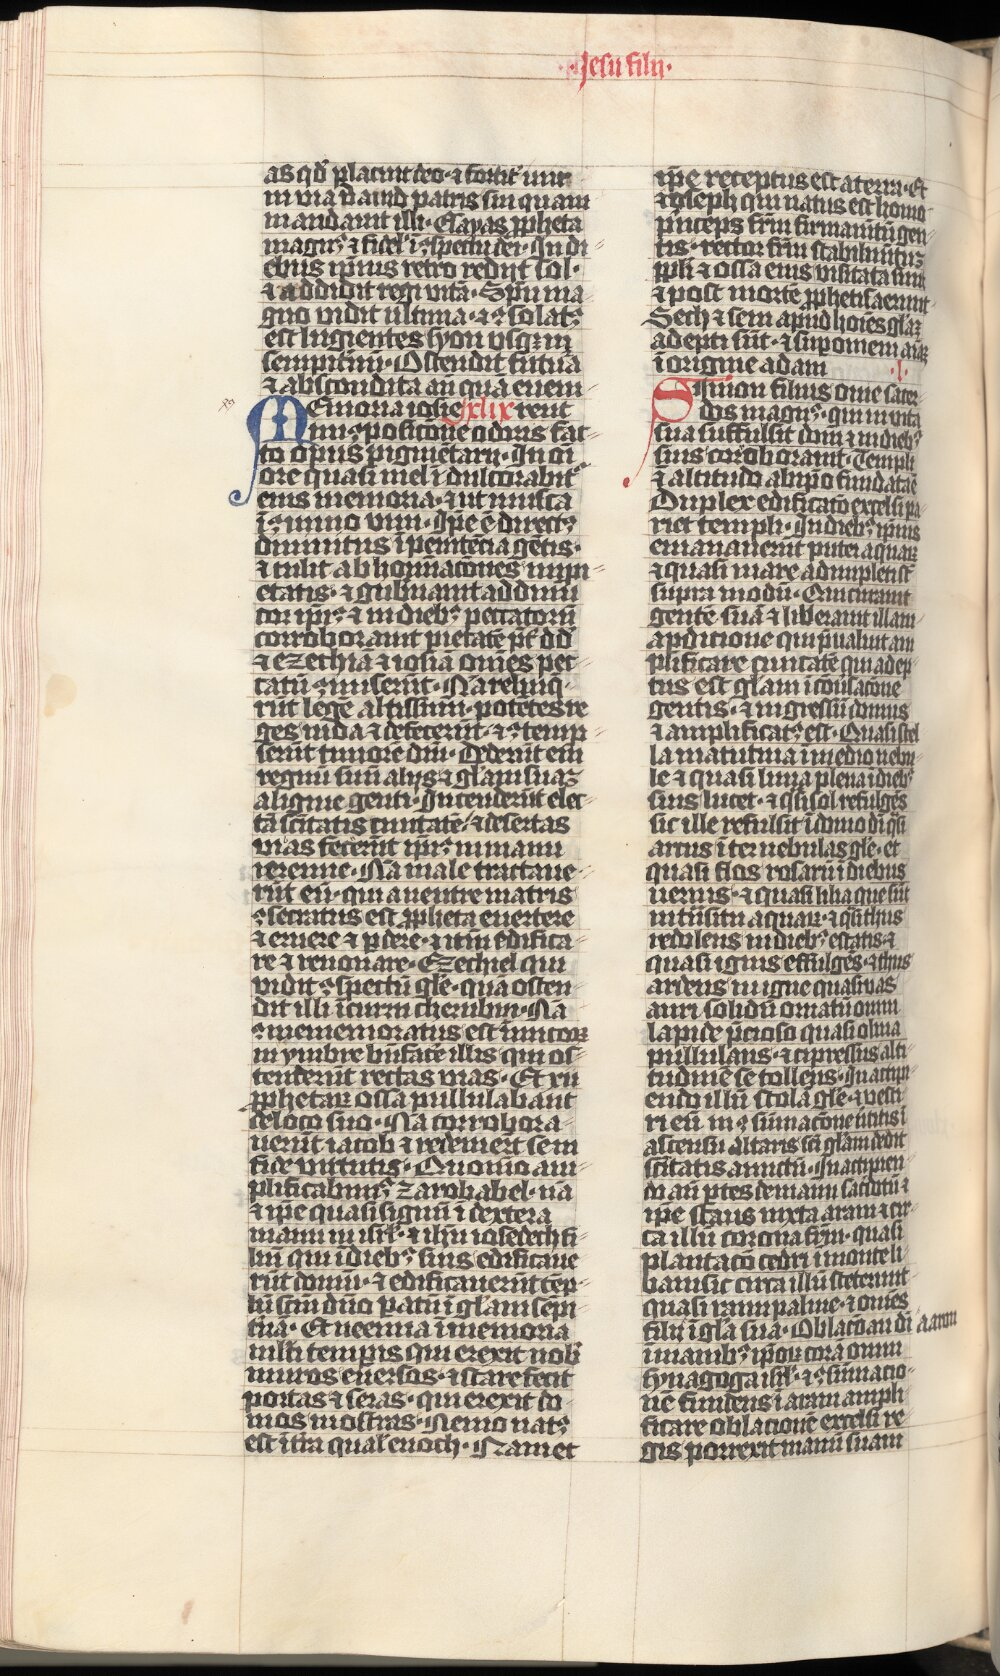 ·Jesu filij·
as qd̛ placuit deo· ⁊ fortit͛ iuit
in via dauid patris sui quam
mandauit illi· Esayas ꝓpheta
magn᷒ ⁊ fidel̛ i ꝯspectu dei· In di
ebus ipsius retro redijt sol·
⁊ addidit regi vitā· Sp̄u ma
gno vidit ultima· ⁊ ꝯsolat᷒
est lugientes syon vsqꝫ in
sempit̛nū· Ostendit futura
⁊ abscondita an̄ qua euenī
MEmoria iosie xlix rent
inuꝫ posicōne odoris fac
to opus pigmētarij· In oī
ore quasi mel īdulcorabit͛
eius memoria· ⁊ ut musica
ī ꝯuiuio vini· Ipe ē direct᷒
diuinitus ī penitēcia gētis·
⁊ tulit abhominacōnes impi
etatis· ⁊ gub̛nauit ad dnm̄
cor ipi᷒ ⁊ in dieb᷒ peccatorū
corroborauit pietatē p̄t̛ dd̄
⁊ ezechiā ⁊ iosiā om̄es pec
catū ꝯmiserūt· Nā reliniq̄
rūt legē altissimi· potētes re
ges iuda ⁊ defecerūt· ⁊ ꝯtemp
serūt timorē dn̄i· Dederūt em̄
regnū suū alijs ⁊ gl̄am suaꝫ
aligine genti· Incenderūt elec
tā scītatis ciuitatē· ⁊ desertas
vias fecerūt ipi᷒ in manu
ieremie· Nā male tractaue
rūt eū· qui a uentre matris
ꝯsecratus est ꝓpheta euertere
⁊ eruere ⁊ ꝑdere· ⁊ itm̄ edifica
re ⁊ renouare· Ezechiel qui
vidit ꝯspectū gl̄e· quā osten
dit illi ī curru cherubin· Nā
ꝯmemoratus est inimicoꝝ
in ymbre bn̄facē illis qui os
tenderūt rectas vias· Et xij
ꝓphetaꝝ ossa pullulabant
de loco suo· Nā corrobora
uerūt iacob ⁊ redemert̄ se in
fide virtutis· Quomō am
plificabim᷒ zarobabel· nā
⁊ ipe quasi signū ī dextera
manu in isrl̄· ⁊ ihm̄ iosedech fi
liū qui ī dieb᷒ suis edificaue
rūt domū· ⁊ edificauerūt tēp
lū scm̄ dn̄o patū ī gl̄am sepi
t̛na· Et neemia ī memoria
multi temꝑis qui erexit nob̛
muros euersos· ⁊ stare fecit
portas ⁊ seras· qui erexit do
mos nostras· Nemo nat᷒
est ī tr̄a qual̛ enoch· Nam et
ipe receptus est a terra· Et
⁊ ioseph qui natus est homo
p̄nceps frm̄ firmamītū gen
tis· rector frm̄ stabilimītuꝫ
ppli ⁊ ossa eius visitata sunt
⁊ post mortē ꝓphetisauerunt
Seth ⁊ sem apud hoīes gl̄aꝫ
adepti sūt· ⁊ sup omnem aīaꝫ
ī origine adam ·l·
SImon filius onie sacer
dos magn᷒· qui in vita
sua suffulsit domū ⁊ in dieb᷒
suis corroborauit· Templi
⁊ altitudo ab ip̄o fundata ē
Duplex edificatō excelsi pa
riet̄ templi· In dieb᷒ ipsius
emanauerūt putei aquaꝝ
⁊ quasi mare adimpleti st̄
supra modū· Qui curauit
gentē suā ⁊ liberauit illam
a ꝑdicione qui p̄ualuit am
plificare ciuitatē qui adep
tus est gl̄am ī ꝯuersacōne
gentis· ⁊ ingressū domus
⁊ amplificat᷒ est· Quasi stel
la matutina ī medio nebu
le ⁊ quasi luna plena ī dieb᷒
suis lucet· ⁊ q̄si sol refulgēs
sic ille refulsit ī domo di q̄si
arcus ī ter nebulas gl̄e· et
quasi flos rosarū ī diebus
uernis· ⁊ quasi lilia que sūt
in trāsitu aquaꝝ· ⁊ q̄si thus
redolens in dieb᷒ estatis· ⁊
quasi ignis effulgēs· ⁊ thus
ardens in igne quasi vas
auri solidū ornatū omni
lapide p̄cioso quasi oliua
pullulans· ⁊ cipressus alti
tudinē se tollens· In accipi
endo illū stolā gl̄e· ⁊ vesti
ri eū in ꝯsūmacōne ūtutis ī
ascensu altaris sci gl̄am dedit
sc̄itatis amictū· In accipien
do aū ꝑtes de manu sac̛dotū ⁊
ipe stans iuxta aram ⁊ cir
ca illū corona frm̄· quasi
plantacō cedri ī monte li
bani sic circa illū steterunt
quasi rami palme· ⁊ om̄es
filij ī gl̄a sua· Oblacō aū dī Aaron
ī manib᷒ ipoꝝ corā omni
synagoga isrl̄· ⁊ ꝯsūmacio
nē fundens ī aram ampli
ficare oblacionē excelsi re
gis porrexit manū suam